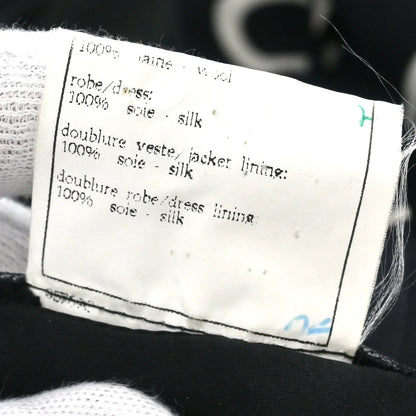 100% laine - wool
robe/dress:
100% soie - silk
doublure veste/jacket lining:
100% soie - silk
doublure robe/dress lining:
100% soie - silk